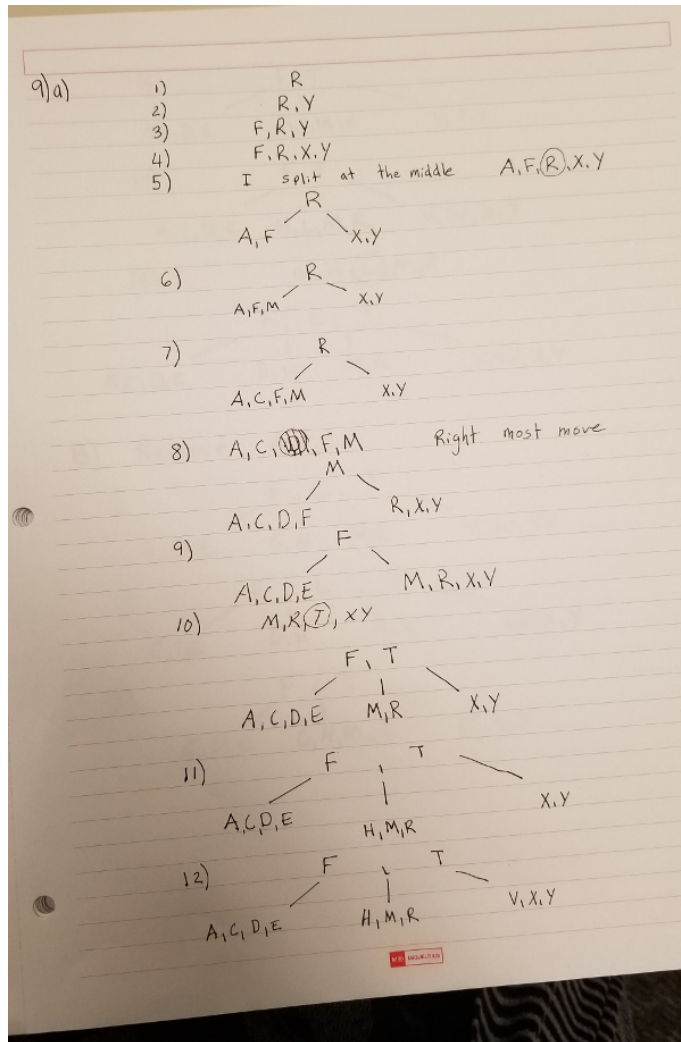 9)a) 1) R
2) R, Y
3) F, R, Y
4) F, R, X, Y
5) I split at the middle A, F, R, X, Y
R
A, F X, Y
6) R
A, F, M X, Y
7) R
A, C, F, M X, Y
8) A, C, D, F, M Right most move
M
A, C, D, F R, X, Y
9) F
A, C, D, E M, R, X, Y
10) M, R, T, X Y
F, T
A, C, D, E M, R X, Y
11) F , T
A, C, D, E H, M, R X, Y
12) F , T
A, C, D, E H, M, R V, X, Y